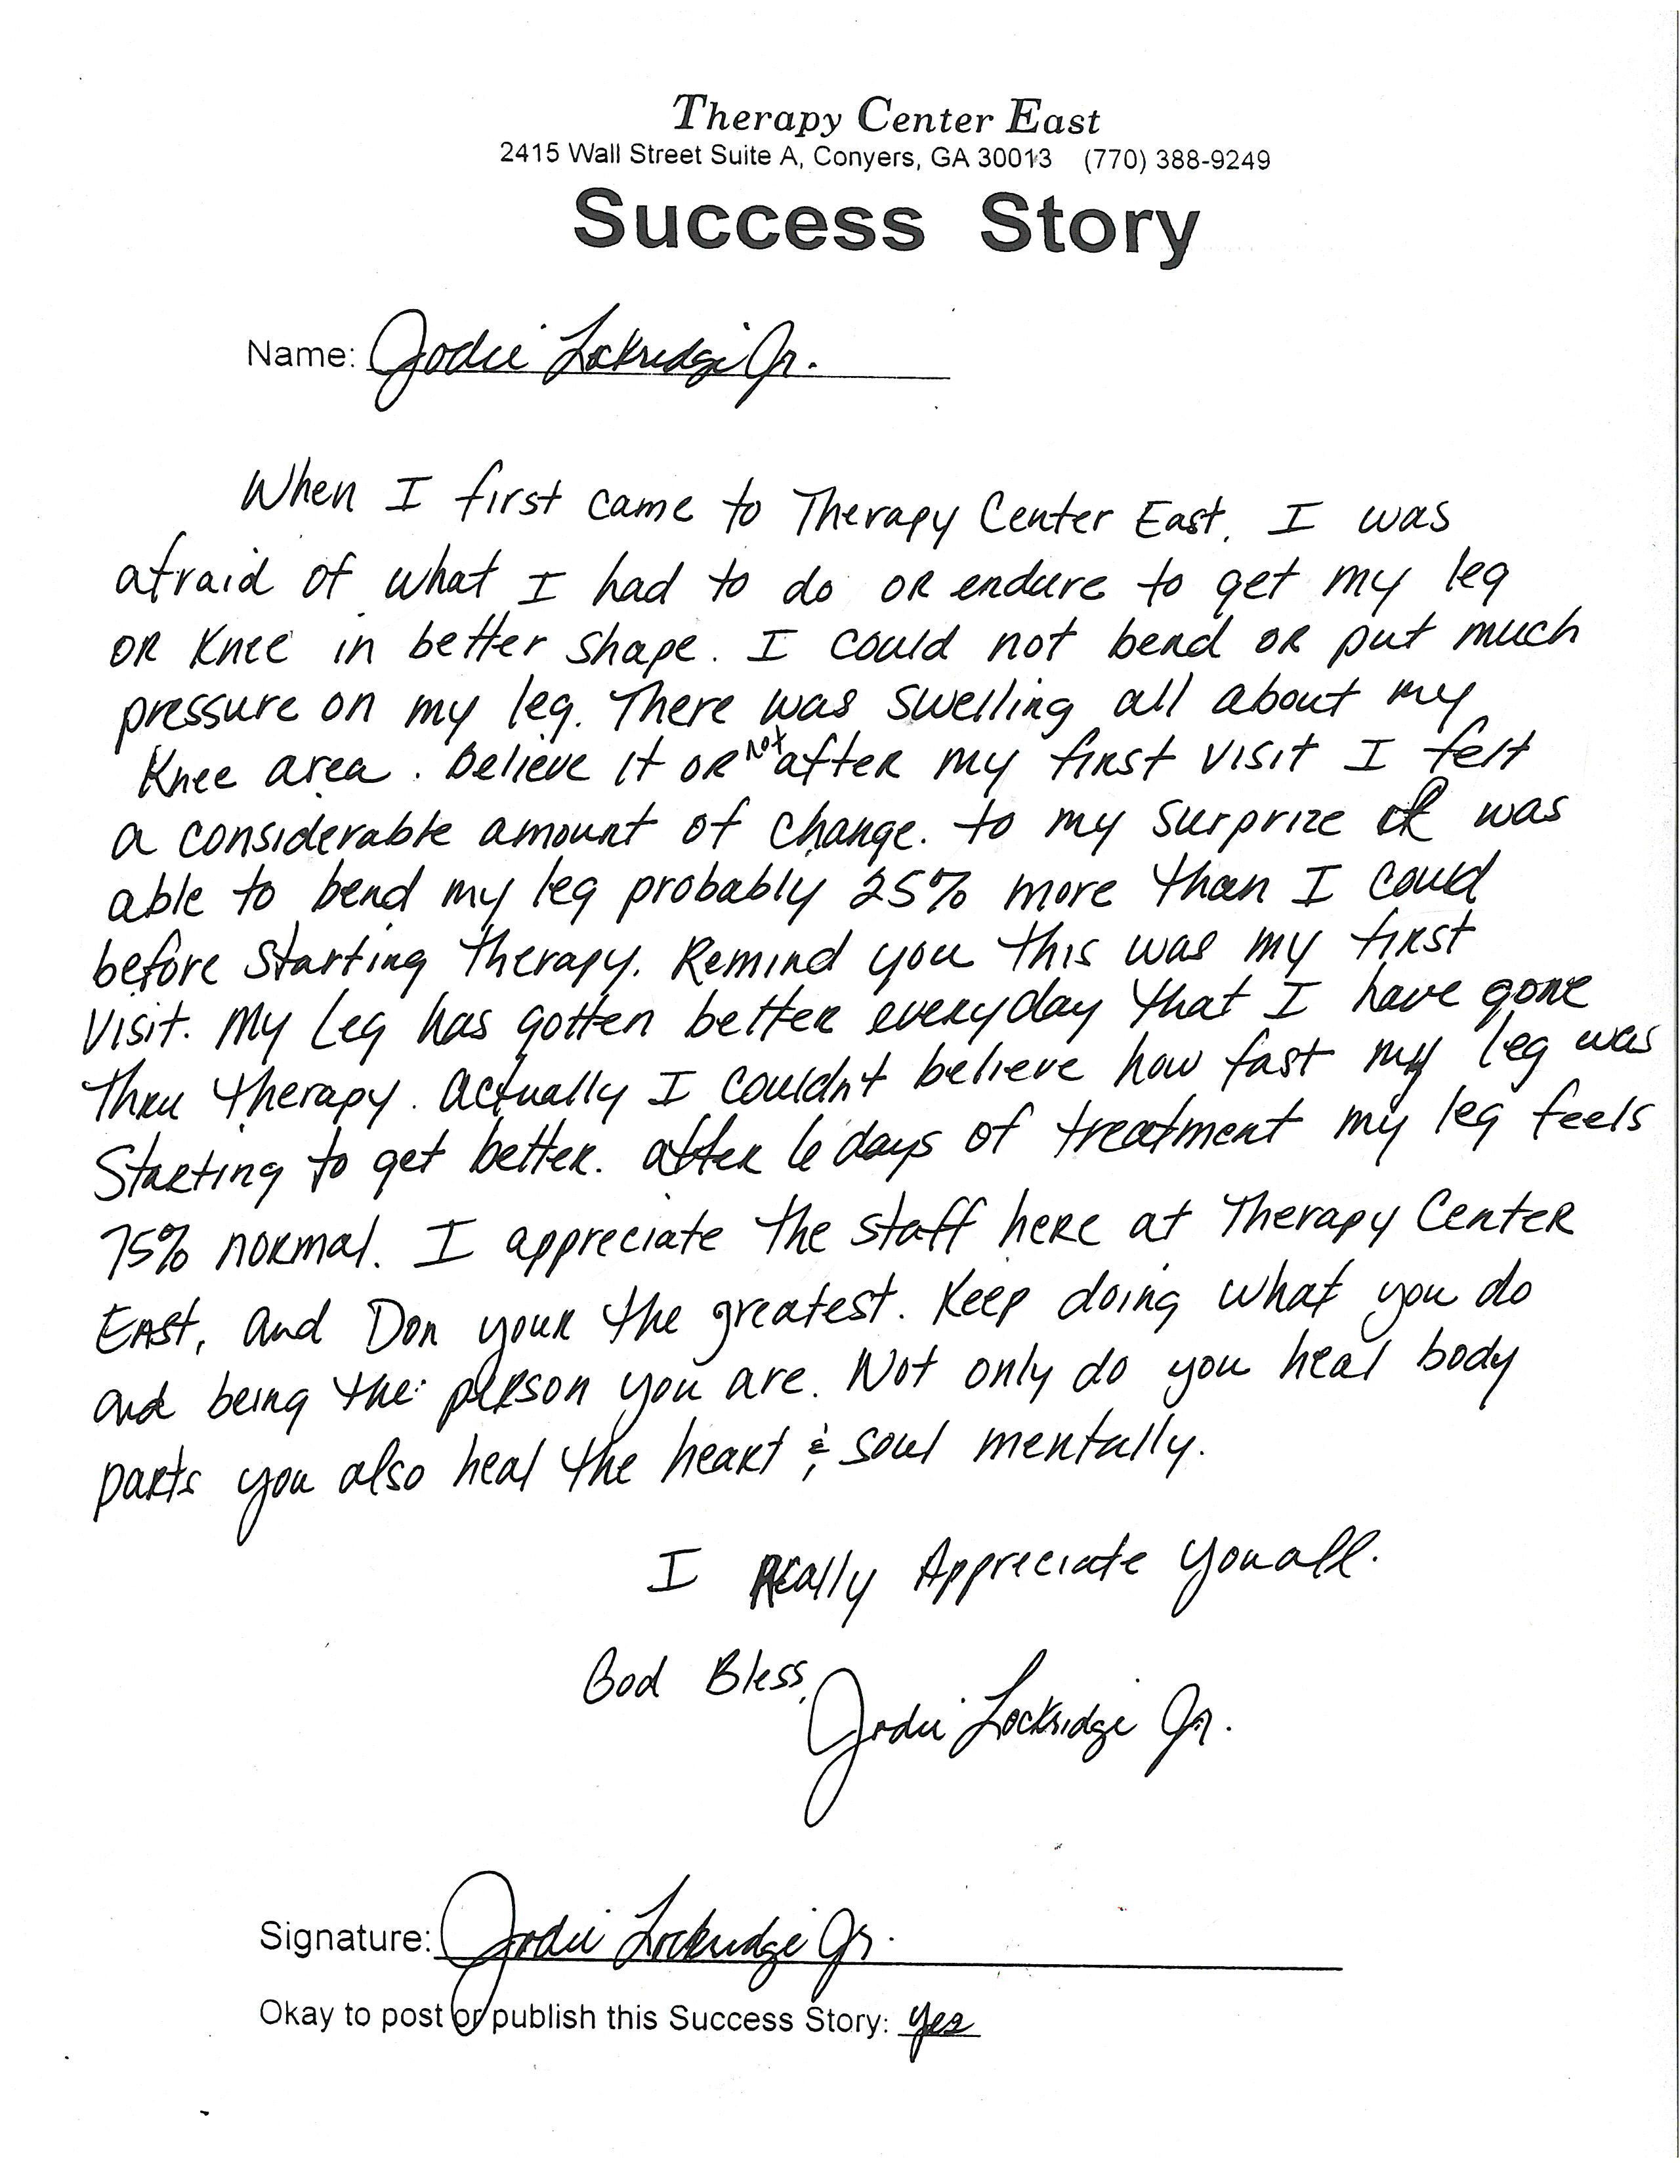 Therapy Center East
2415 Wall Street Suite A, Conyers, GA 30013 (770) 388-9249
Success Story
Name: Jodie Lockridge Jr.
When I first came to Therapy Center East, I was
afraid of what I had to do or endure to get my leg
or knee in better shape. I could not bend or put much
pressure on my leg. There was swelling all about my
knee area. Believe it or not after my first visit I felt
a considerable amount of change. to my surprize I was
able to bend my leg probably 25% more than I could
before starting therapy. Remind you this was my first
visit. My Leg has gotten better everyday that I have gone
thru therapy. Actually I couldn't believe how fast my leg was
Starting to get better. After 6 days of treatment my leg feels
75% normal. I appreciate the staff here at Therapy Center
East, and Don your the greatest. Keep doing what you do
and being the person you are. Not only do you heal body
parts you also heal the heart & soul mentally.
I Really Appreciate you all.
God Bless,
Jodie Lockridge Jr.
Signature: Jodie Lockridge Jr.
Okay to post or publish this Success Story: yes